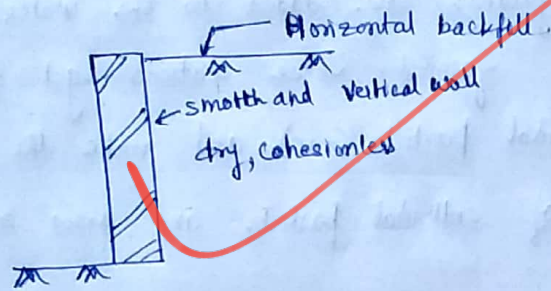 Horizontal backfill.
smooth and vertical wall
dry, cohesionless